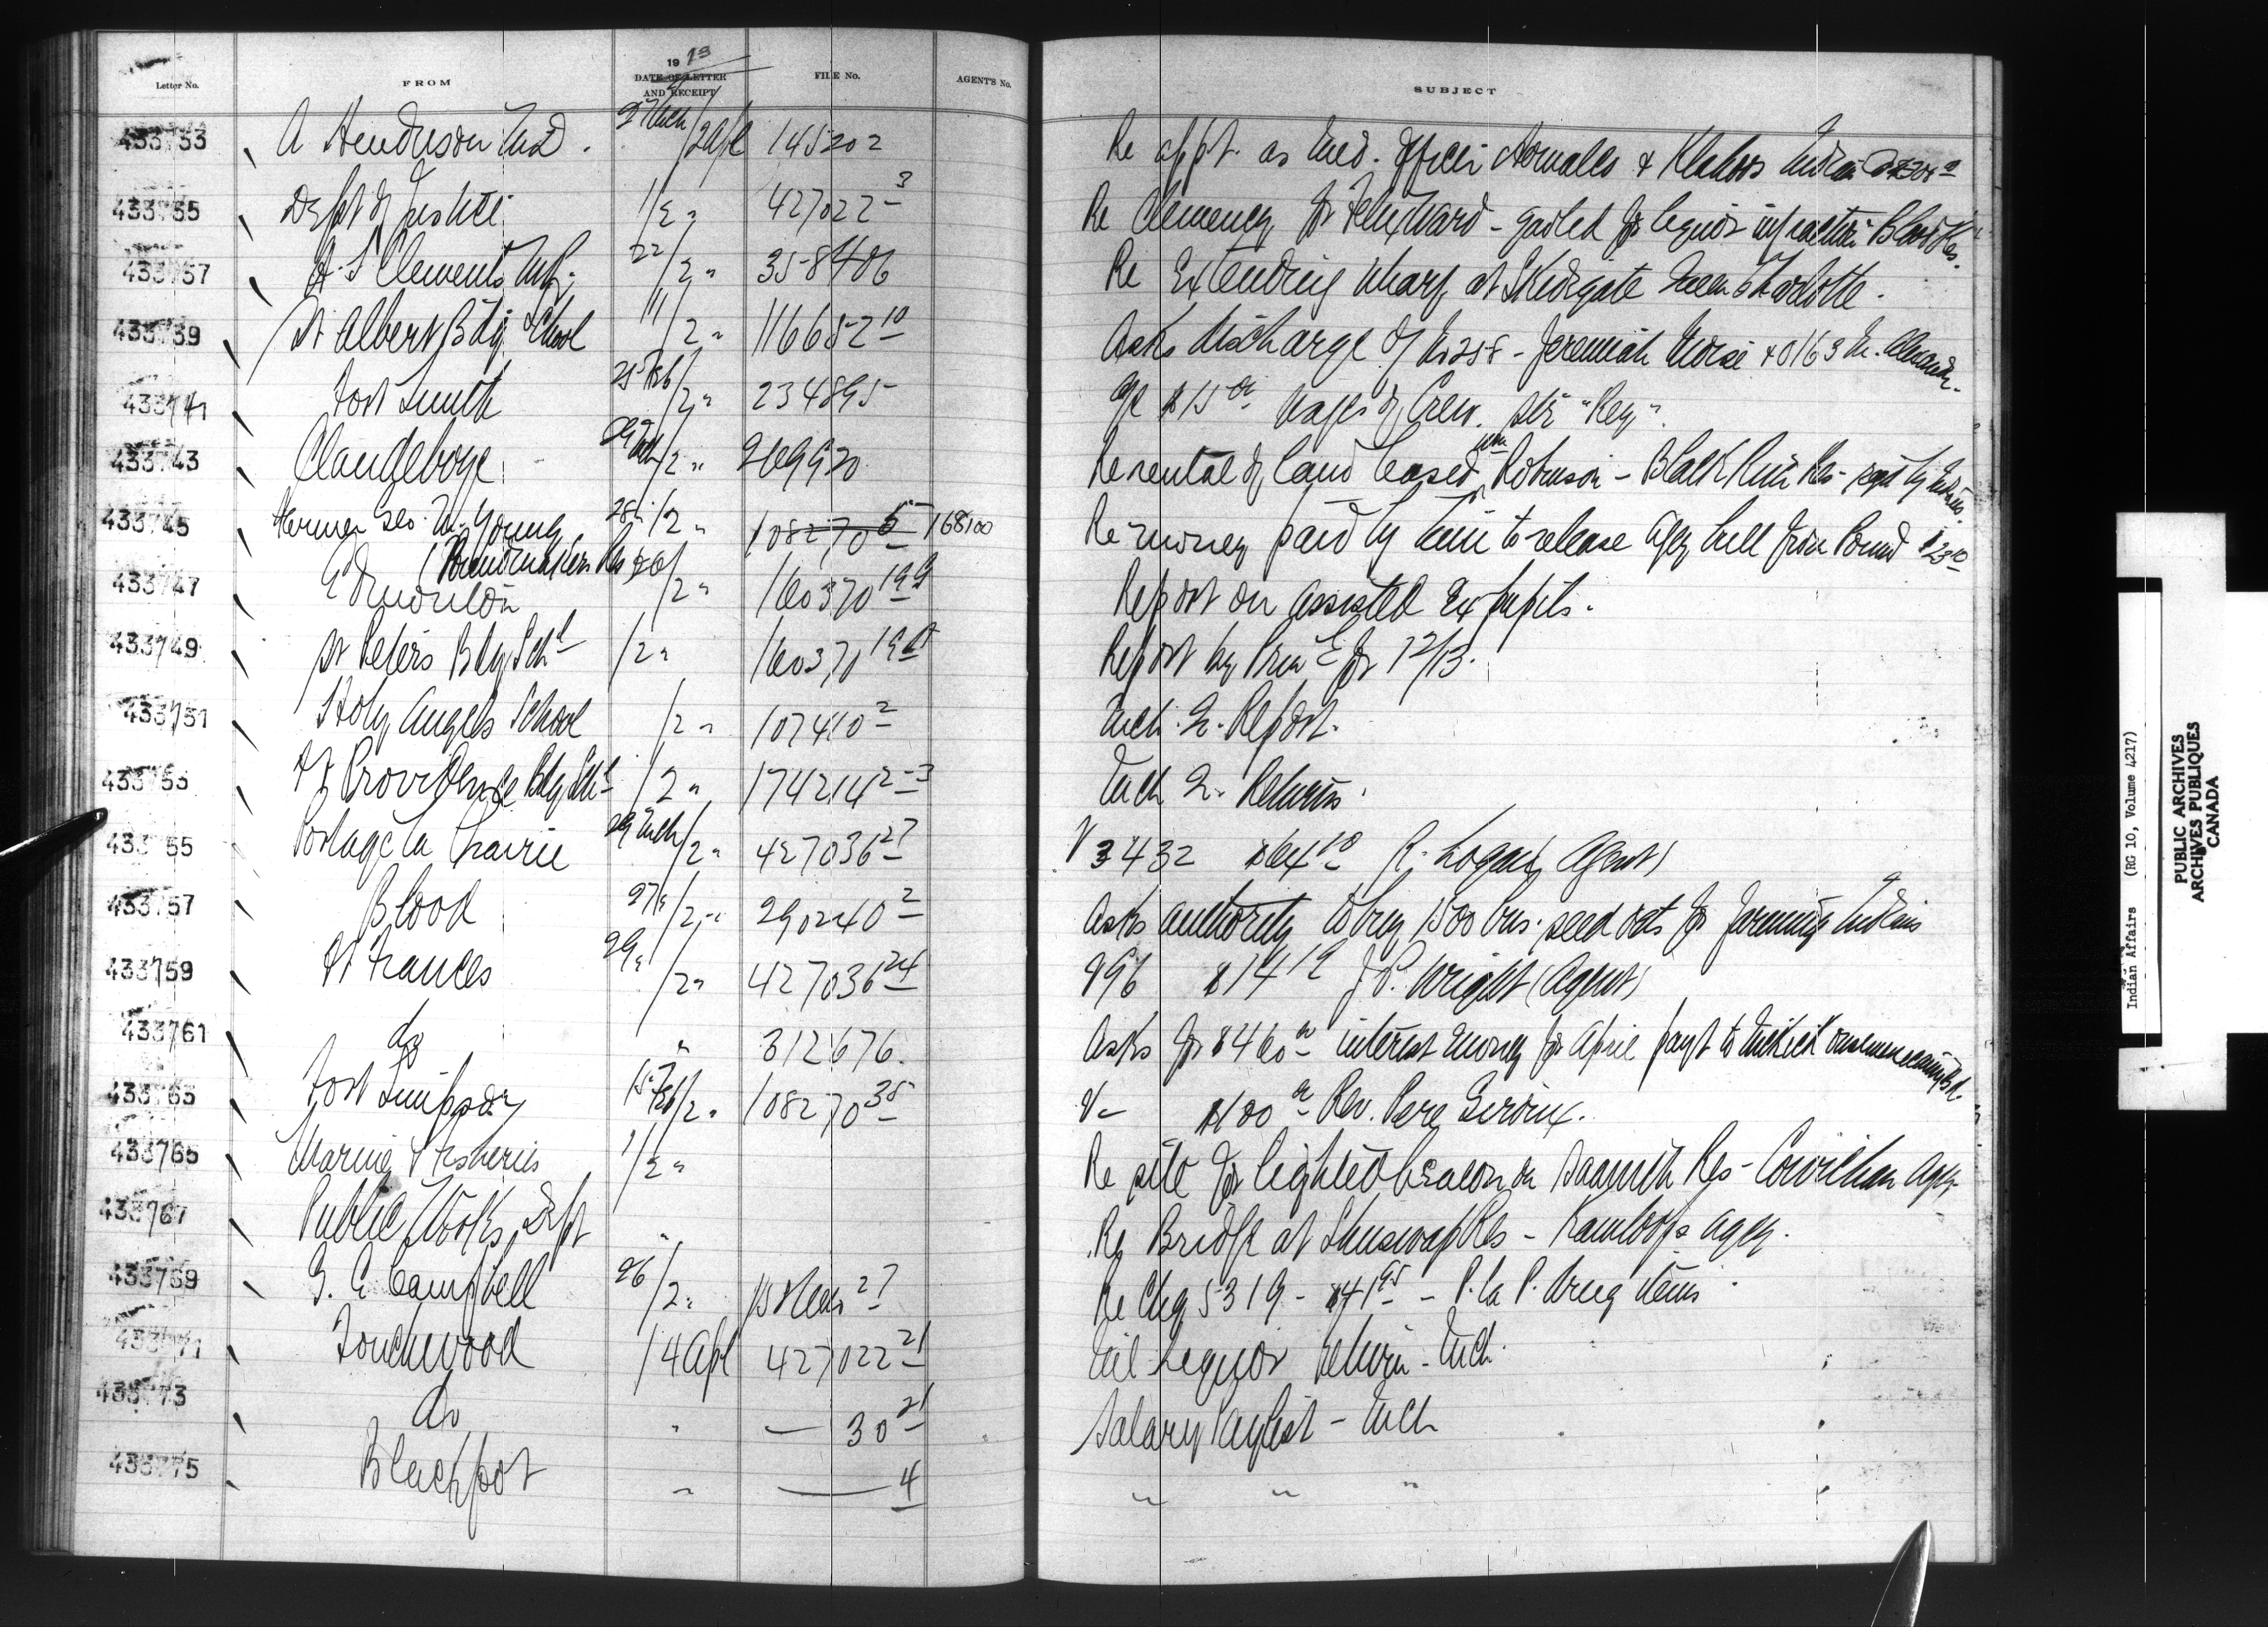 Letter No. FROM 1913 DATE OF LETTER AND RECEIPT FILE No. AGENT'S No. SUBJECT
433733 A Henderson Md. 27 Mch/2 Apl 145202 Re appt. as Med. Officer & Indian
433735 Dept of Justice 1/2 " 427022 3 Re Clemency for Felix Ward - gaoled for liquor infraction Blood Res.
433737 H. S. Clements M.P. 22/2 " 358406 Re Extending Wharf at Skidegate Queen Charlotte.
433739 St Albert Bdg School 11/2 " 116652 10 Asks discharge of No 258 - Jeremiah Morse & 0163 M. Alexander.
433741 Fort Smith 25 Feb/2 " 234895 a/c $15 00 Wages of Crew. Str "Rey".
433743 Clandeboye 29 Mch/2 " 269920 Re rental of land leased Wm Robinson - Black River Res
433745 Farmer Geo. W. Young (Poundmakers Res) 28/2 " 108270 5 168100 Re money paid by him to release Agcy bull from Pound
433747 Edmonton 26/2 " 160370 19 Report on assisted Ex pupils.
433749 St Peters Bdg Schl /2 " 160370 19 Report by Princ for 12/13.
433751 Holy Angels School /2 " 107410 2 Mch. Q. Report.
433753 Ft Providence Bdg Schl /2 " 174214 2-3 Mch Q. Returns.
433755 Portage la Prairie 29 Mch/2 " 427036 27 V 3432 $64 10 R. Logan (Agent)
433757 Blood 27/2 " 290240 2 Asks authority to buy 1500 bus. seed oats for farming Indians
433759 Ft Frances 29/2 " 427036 24 V96 $14 19 J P. Wright (Agent)
433761 do " 312676. Asks for $460 00 interest money for April payt to
433763 Fort Simpson 15 Feb/2 " 108270 35 V- $100 00 Rev. Pere Giroux.
433765 Marine & Fisheries 1/2 " Re site for lighted beacon on Saanich Res - Cowichan Agcy
433767 Public Works Dept " Re Bridge at Shuswap Res - Kamloops Agcy.
433769 G. C. Campbell 26/2 " 27 Re Chq 5319 - $41 95 - P. la P. drug items
433771 Touchwood 1/4 Apl 427022 21 Nil Liquor Return - Mch.
433773 do " — 30 21 Salary Paylist - Mch
433775 Blackfoot " — 4 " " "
Indian Affairs (RG 10, Volume 4217)
PUBLIC ARCHIVES
ARCHIVES PUBLIQUES
CANADA